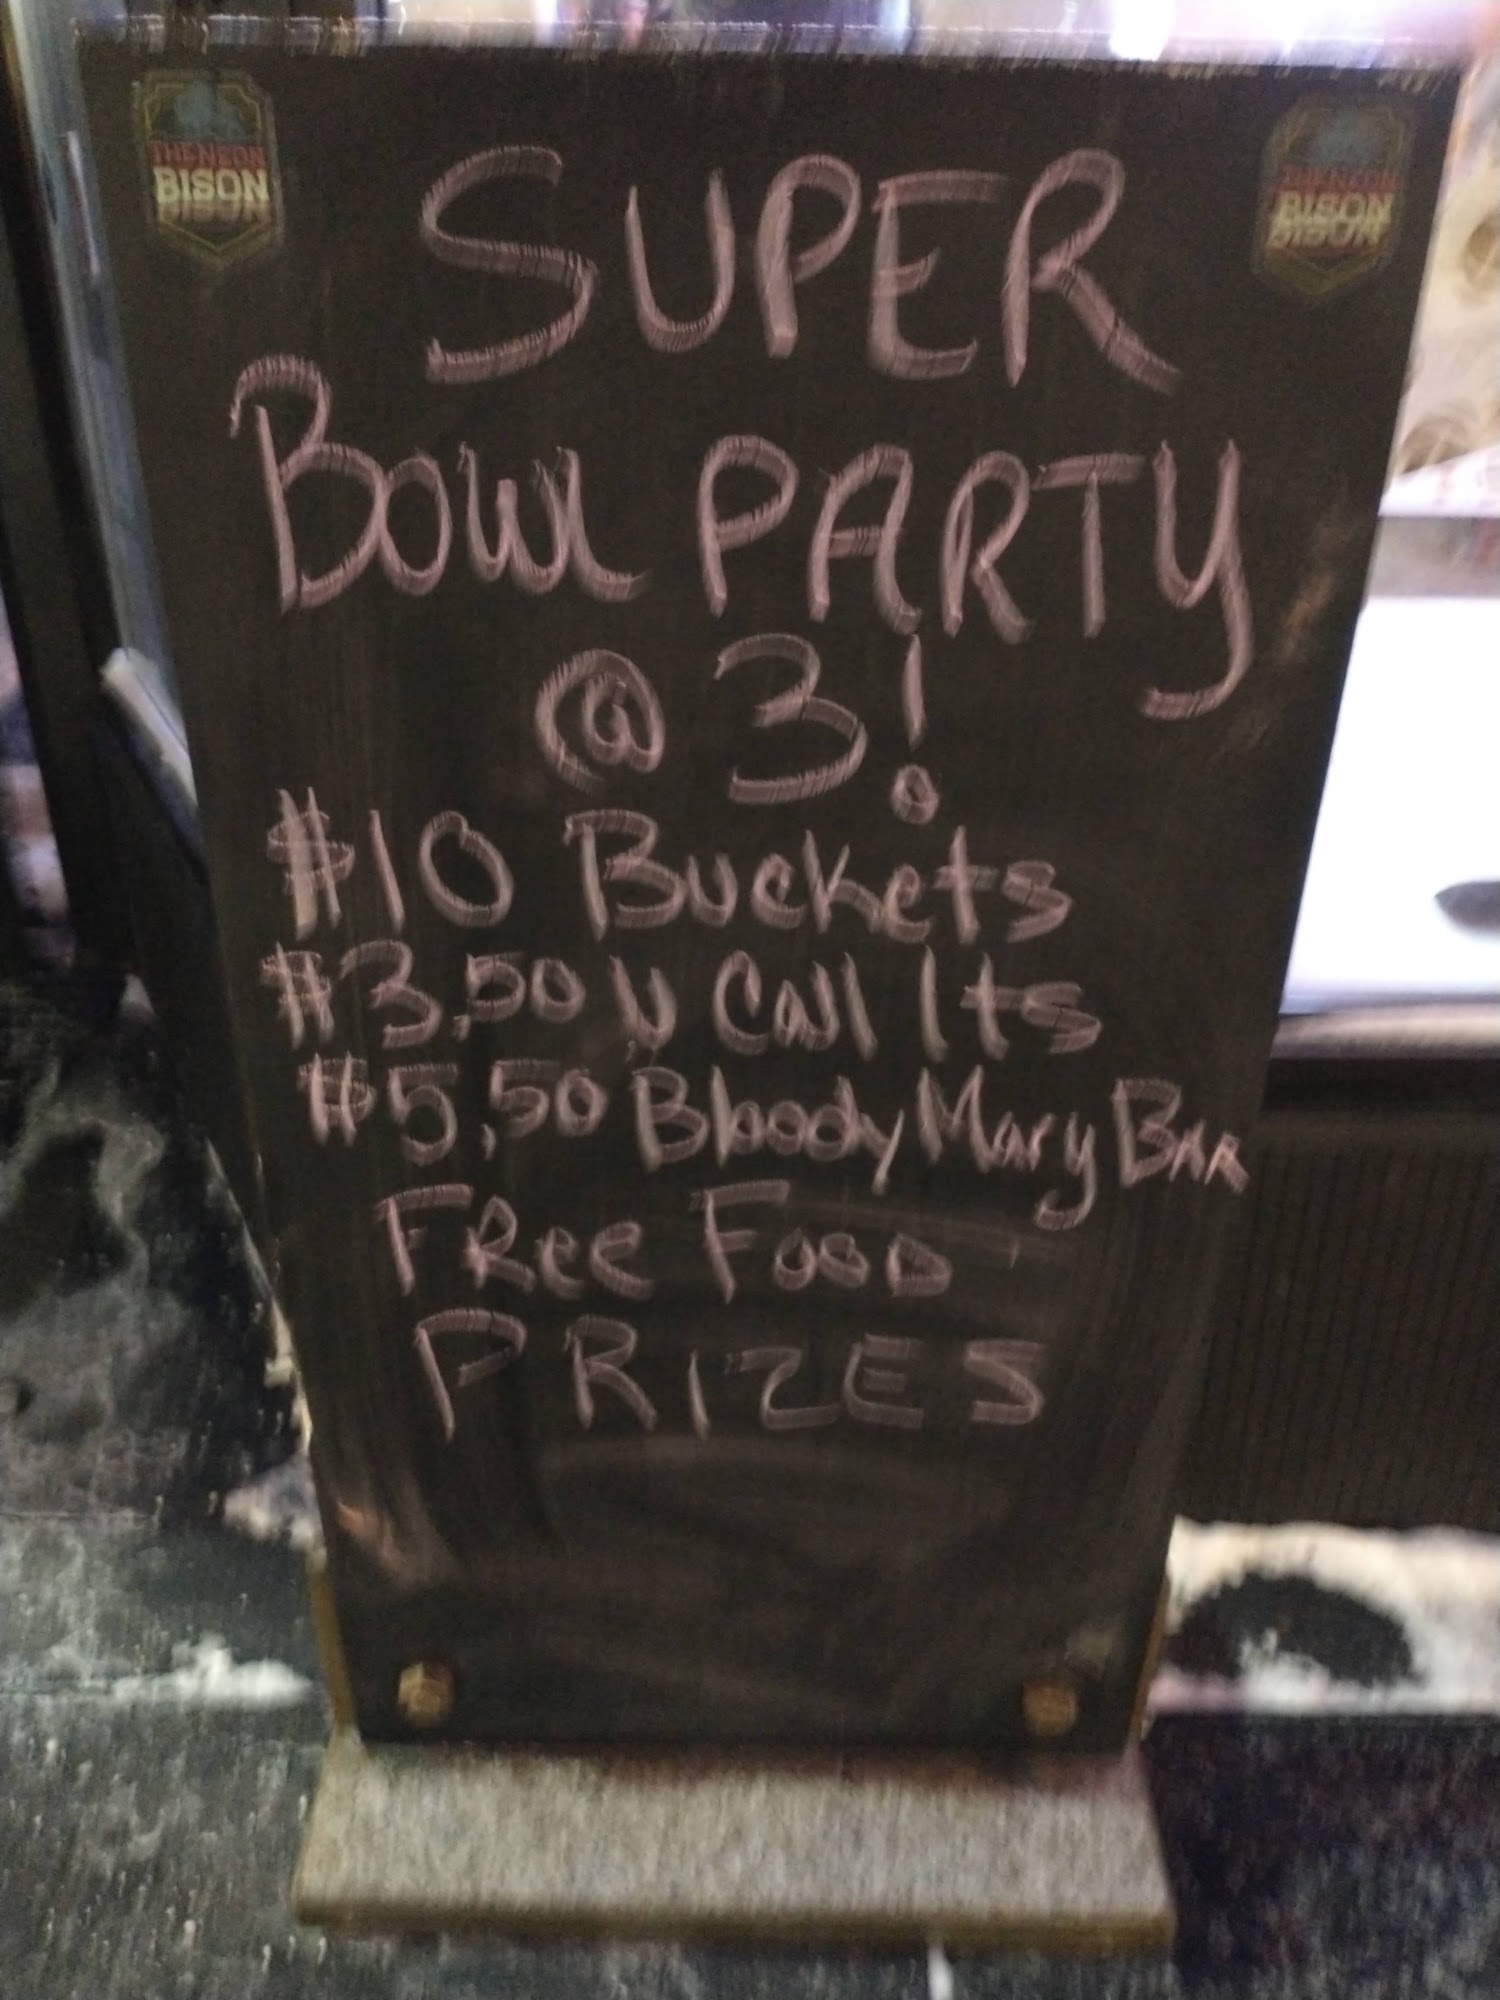 THE NEON
BISON
THE NEON
BISON
SUPER
Bowl PARTY
@ 3!
$10 Buckets
$3.50 U Call Its
$5.50 Bloody Mary BAR
FRee FOOD
PRIZES